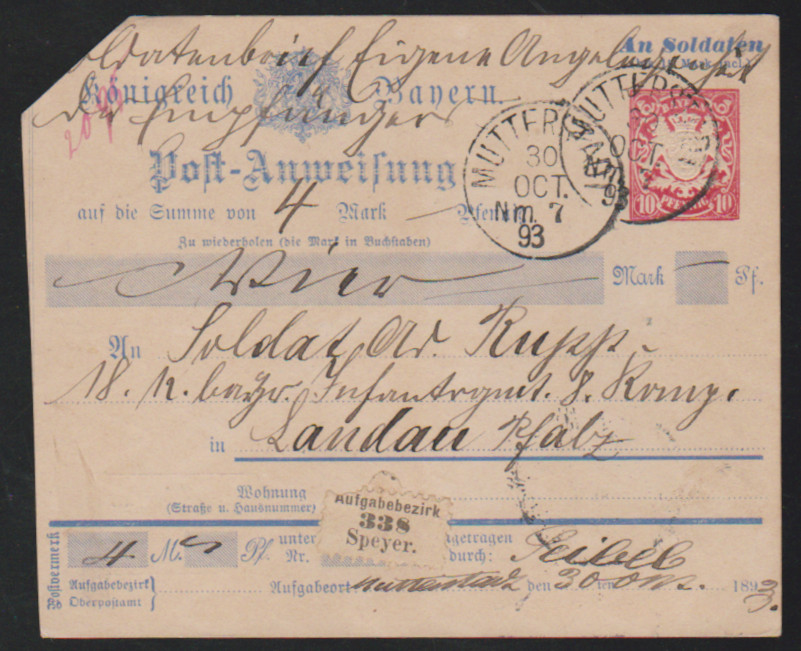 Soldatenbrief Eigene Angelegenheit
des Empfängers
An Soldaten
Königreich Bayern.
Post-Anweisung
auf die Summe von 4 Mark — Pfennig
Zu wiederholen (die Mark in Buchstaben)
Vier — Mark — Pf.
MUTTERSTADT
30
OCT.
Nm. 7
93
MUTTERSTADT
OCT.
93
BAYERN
10 PFENNIG 10
An Soldat Ad. Rupp
18. K. bayr. Infantrgmt. 8. Komp.
in Landau Pfalz
Wohnung
(Straße u. Hausnummer)
Aufgabebezirk
338
Speyer.
Postvermerk
4 M. Pf. unter Nr. eingetragen durch: Geibel
Aufgabebezirk
Oberpostamt
Aufgabeort Mutterstadt den 30 ten Okt. 1893.